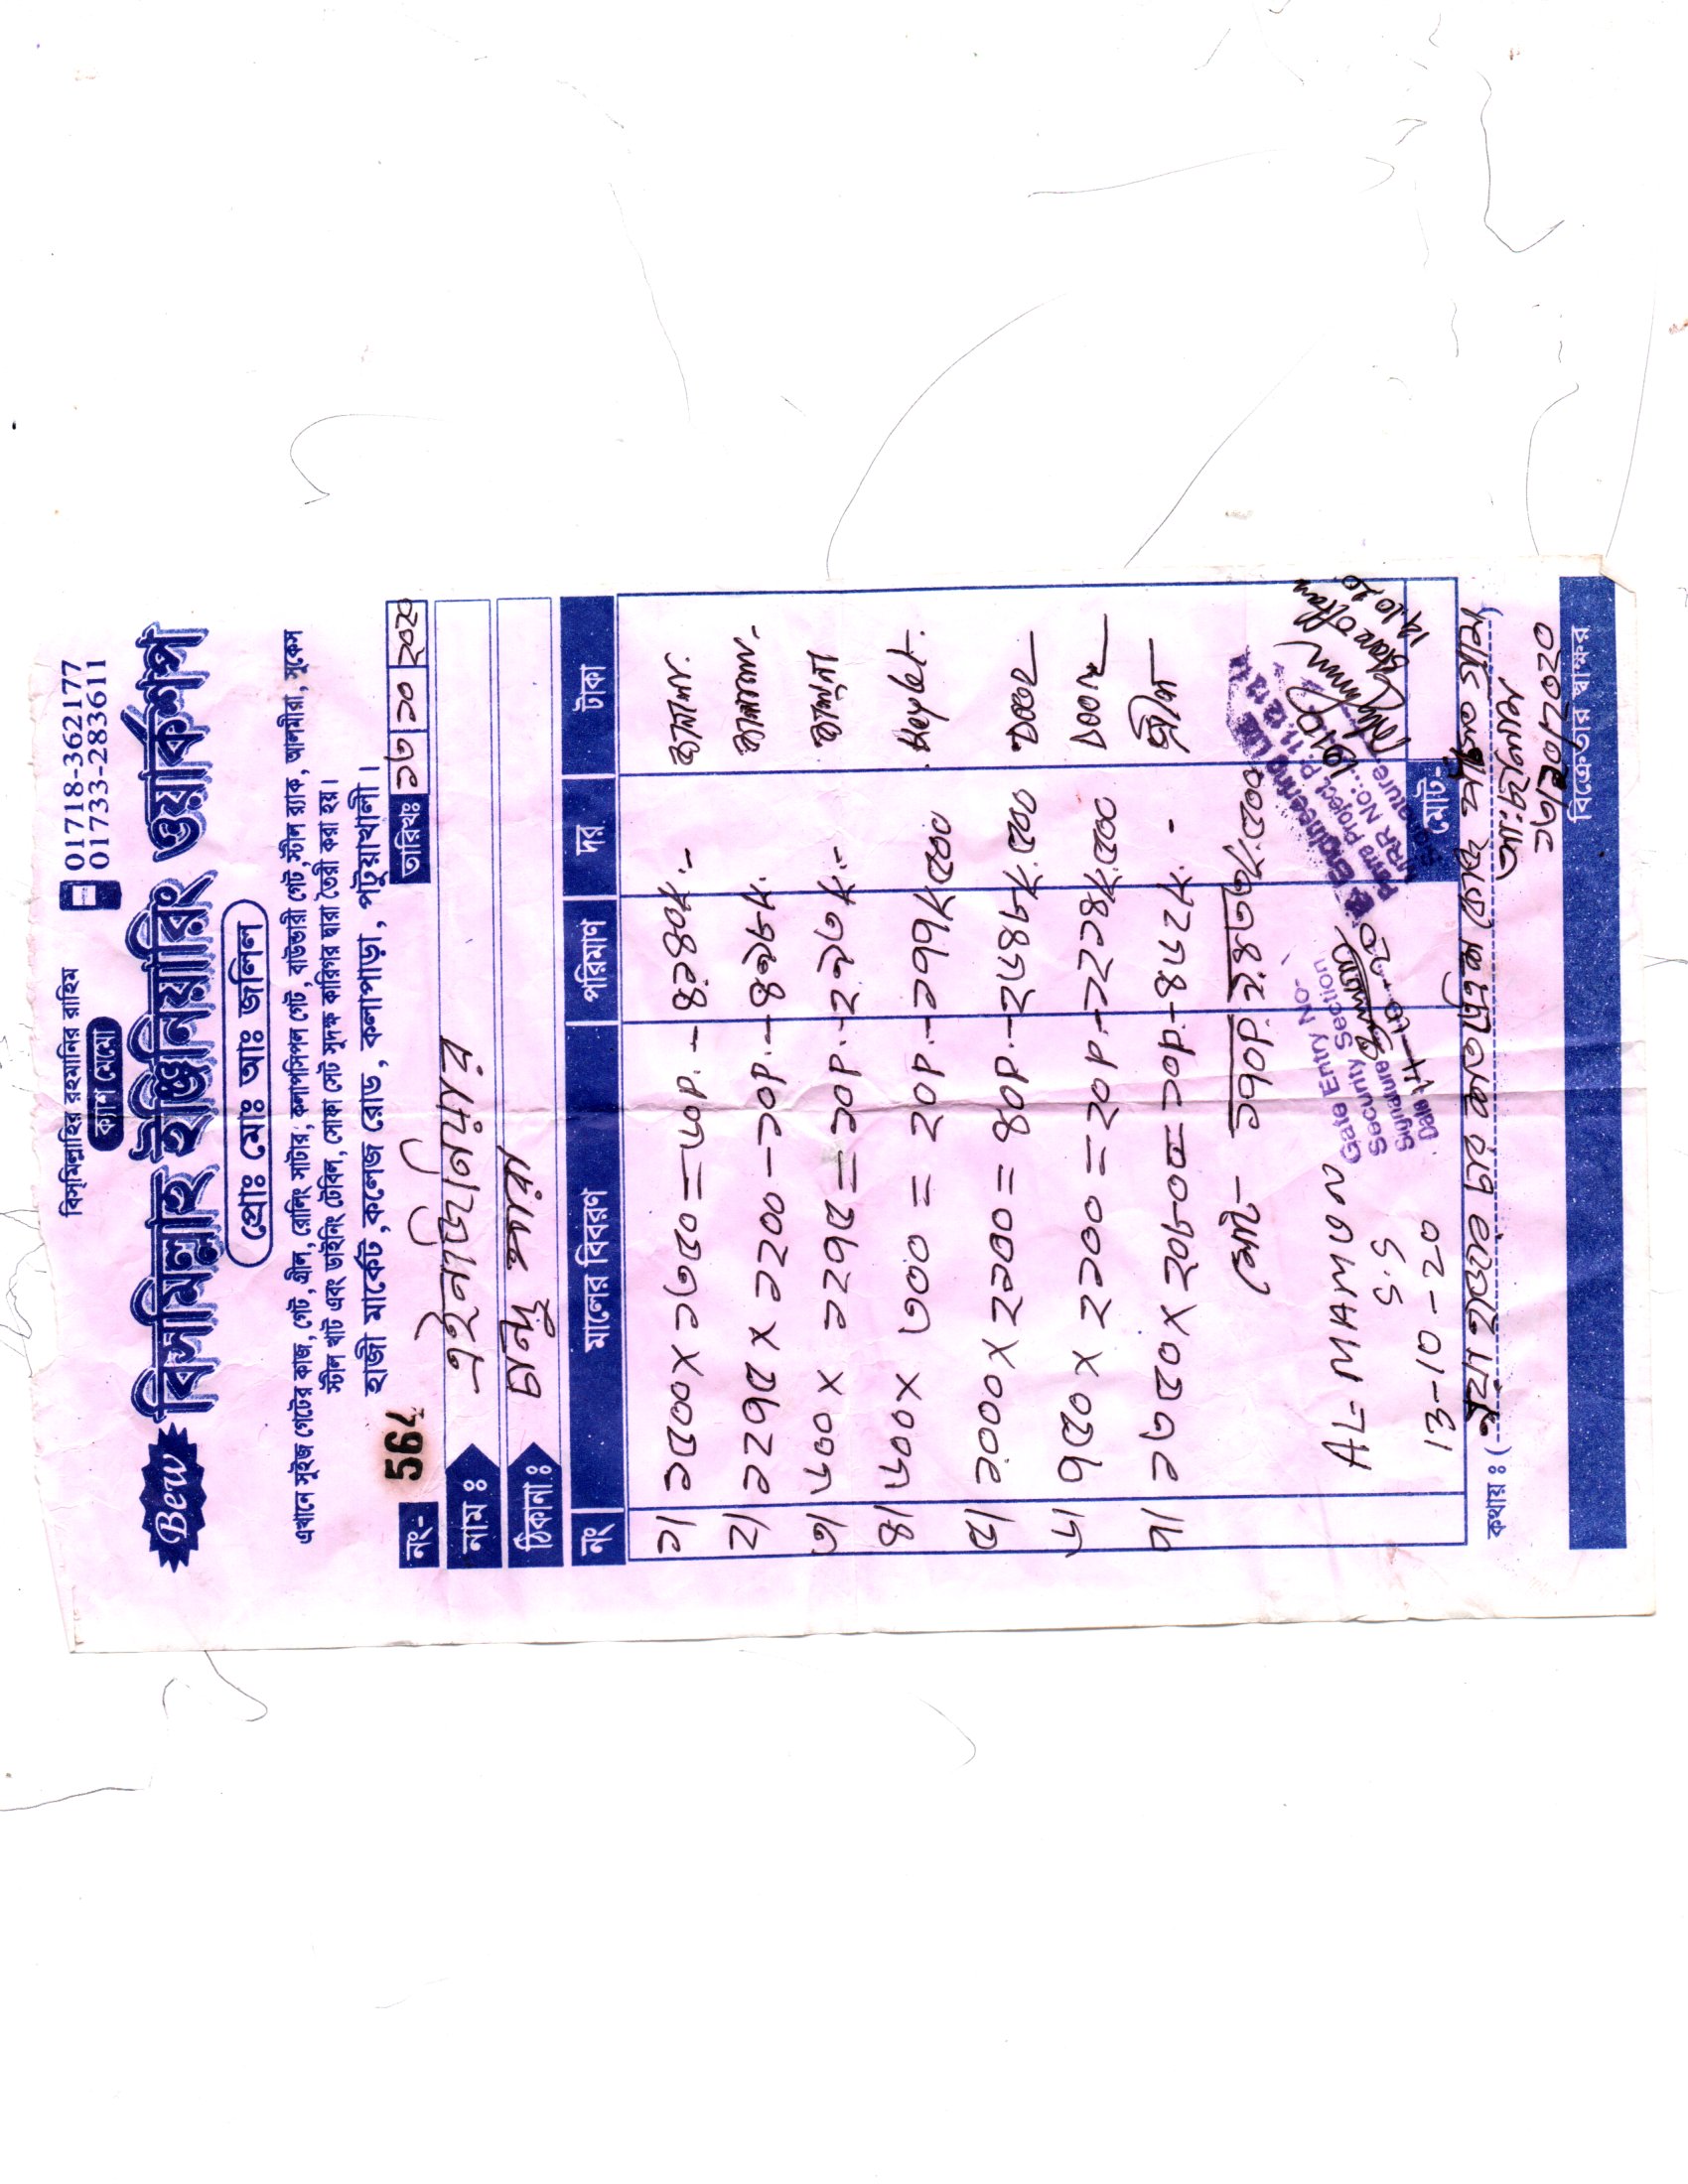 বিস্‌মিল্লাহির রহমানির রাহিম
ক্যাশ মেমো
01718-362177
01733-283611
Bew বিসমিল্লাহ ইঞ্জিনিয়ারিং ওয়ার্কশপ
প্রোঃ মোঃ আঃ জলিল
এখানে সুইজ গেটের কাজ, গেট, গ্রীল, রোলিং সাটার, কলাপসিপল গেট, বাউন্ডারী গেট,স্টীল র‍্যাক, আলমীরা, সুকেস
স্টীল খাট এবং ডাইনিং টেবিল, সোফা সেট সুদক্ষ কারিগর দ্বারা তৈরী করা হয়।
হাজী মার্কেট ,কলেজ রোড, কলাপাড়া, পটুয়াখালী।
নং- 564 তারিখঃ ১৩ ১০ ২০২০
নাম ঃ এইনজিনিয়ার
ঠিকানা ঃ চান্দু পারা
নং মালের বিবরণ পরিমাণ দর টাকা
১। ১৫০০ x ১৩৫০ = ৬০P. - ৪১৪০k.-
২। ১২৭৫ x ১২০০ - ১০P. - ৪৯৮k.
৩। ৬০০ x ১২৭৫ = ১০P. - ২৯৩k.-
৪। ৬০০ x ৩০০ = ২০P. - ১৭৭k ৫০০
৫। ১০০০ x ২১০০ = ৪০P. - ২৬৪৮k. ৫০০ DOOR
৬। ৭৫০ x ২১০০ = ২০P - ১২১৪k. ৫০০ DOOR
৭। ১৩৫০ x ২০৮০ = ১০P. - ৪৬২k. - গ্রীল
মোট- ১৭০P. ৯.৪৩৩k. ৫০০
AL-MAMUN
S.S
13-10-20
Gate Entry No-
Security Section
Signature
Date 14-10-20
Engineering Ltd
Project, P: 11, 12 13 14
MRR No:
Signature
14.10.20
মোট-
কথায় ঃ ( নয়া হাজার চার শত তেত্রিশ কেজি পাঁচশত গ্রাম)
১৩/১০/২০২০
বিক্রেতার স্বাক্ষর